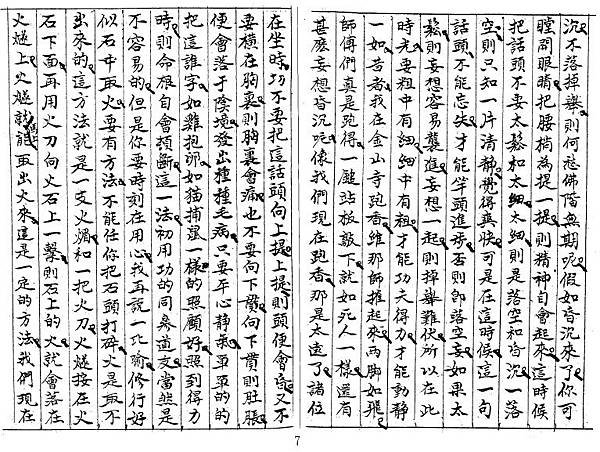 沉不落掉舉則何愁佛階無期呢假如昏沉來了你可
瞠開眼睛把腰梢為提一提則精神自會起來這時候
把話頭不要太鬆和太細太細則是落空和昏沉一落
空則只知一片清静覺得爽快可是在這時候這一句
話頭不能忘失才能竿頭進步否則卽落空妄如果太
鬆則妄想容易襲進妄想一起則掉舉難伏所以在此
時光要粗中有細細中有粗才能功夫得力才能動静
一如昔者我在金山寺跑香維那師推起來兩脚如飛
師傅們真是跑得一越站板敲下就如死人一樣還有
甚麽妄想昏沉呢像我們現在跑香那是太遠了諸位
在坐時功不要把這話頭向上提上提則頭便會昏又不
要橫在胸裏則胸裏會痛也不要向下貫向下貫則肚脹
便會落于陰境發出種種毛病只要平心静氣單單的的
把這誰字如雞抱卵如猫捕鼠一樣的照顧好照到得力
時則命根自會頓斷這一法初用功的同參道友當然是
不容易的但是你要時刻在用心我再說一比喻修行好
似石中取火要有方法不能任你把石頭打碎火是取不
出來的這方法就是一支火媒和一把火刀火媒按在火
石下面再用火刀向火石上一擊則石上的火就會落在
火媒上火媒就能馬取出火來這是一定的方法我們現在
7